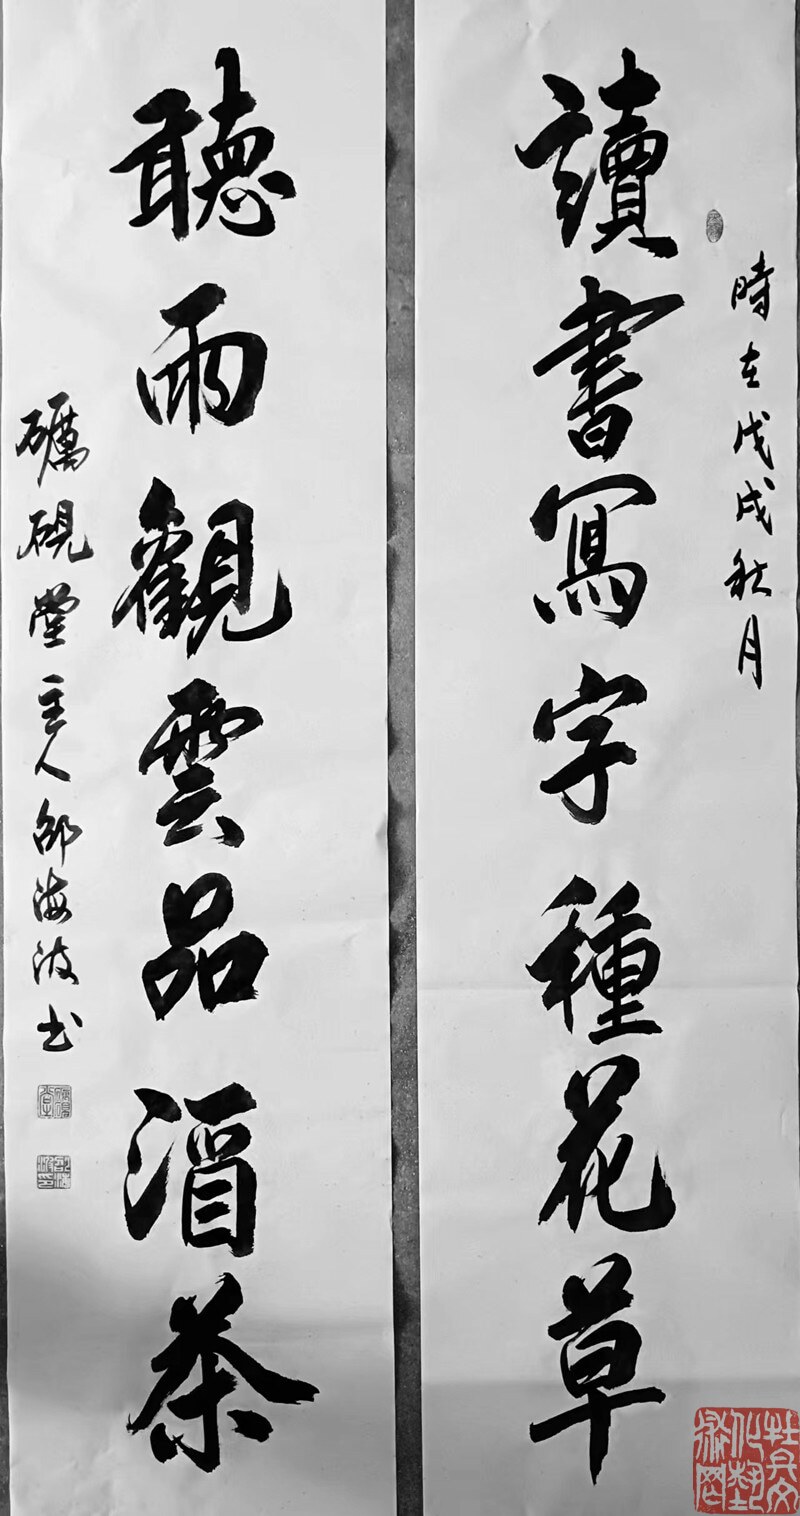 時在戊戌秋月
讀書寫字種花草
聽雨觀雲品酒茶
礪硯堂主人邵海波書